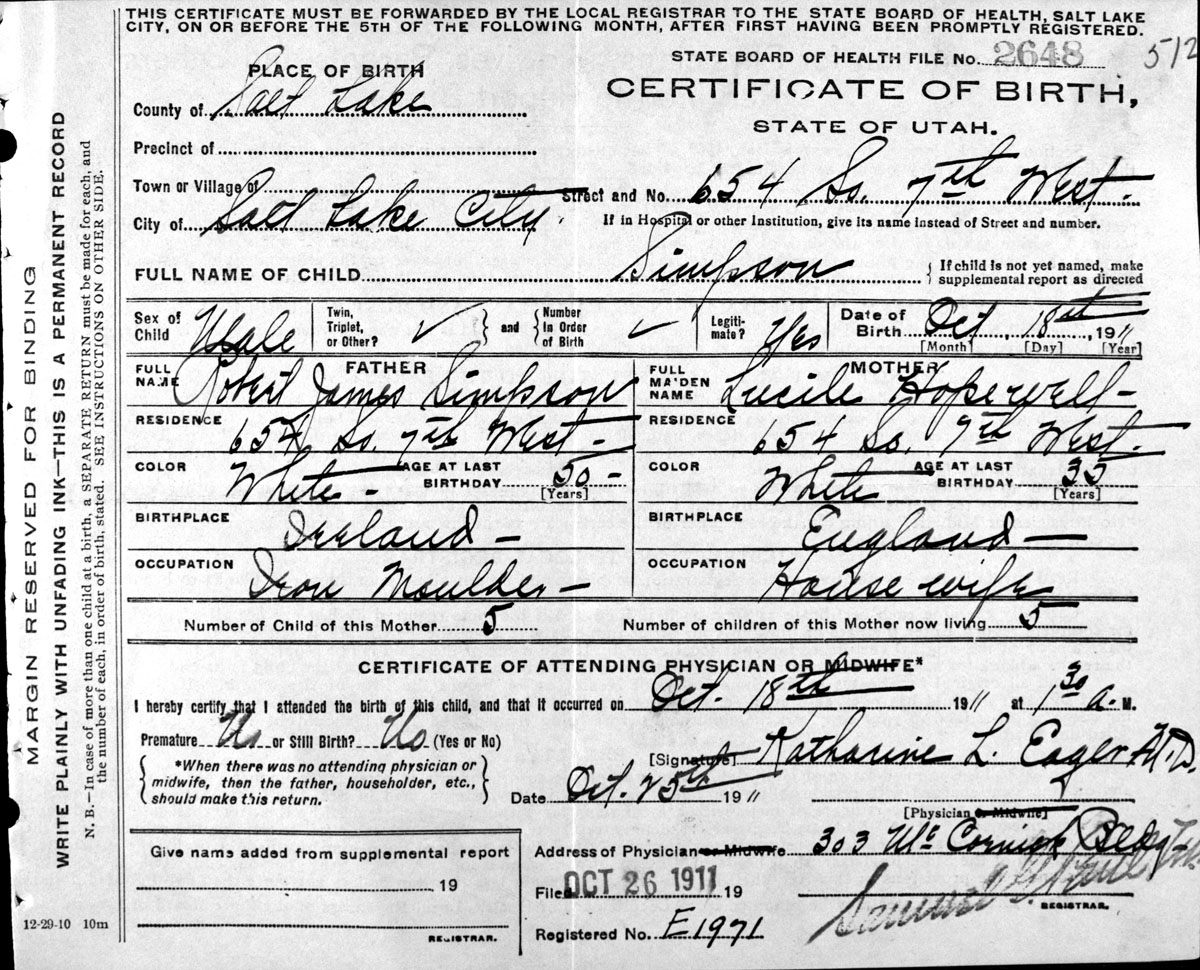 THIS CERTIFICATE MUST BE FORWARDED BY THE LOCAL REGISTRAR TO THE STATE BOARD OF HEALTH, SALT LAKE
CITY, ON OR BEFORE THE 5TH OF THE FOLLOWING MONTH, AFTER FIRST HAVING BEEN PROMPTLY REGISTERED.
STATE BOARD OF HEALTH FILE No. 2648 512
PLACE OF BIRTH
CERTIFICATE OF BIRTH,
County of Salt Lake
STATE OF UTAH.
Precinct of
Town or Village of
Street and No. 654 So. 7th West.
City of Salt Lake City.
If in Hospital or other Institution, give its name instead of Street and number.
FULL NAME OF CHILD Simpson
If child is not yet named, make
supplemental report as directed
Sex of Child Male
Twin, Triplet, or Other? ✓ and Number In Order of Birth ✓
Legitimate? Yes
Date of Birth Oct 18th, 1911
[Month] [Day] [Year]
FATHER
FULL NAME Robert James Simpson
MOTHER
FULL MAIDEN NAME Lucile Hopewell-
RESIDENCE 654 So. 7th West-
RESIDENCE 654 So. 7th West.
COLOR White- AGE AT LAST BIRTHDAY 50- [Years]
COLOR White AGE AT LAST BIRTHDAY 35 [Years]
BIRTHPLACE Ireland-
BIRTHPLACE England-
OCCUPATION Iron Moulder-
OCCUPATION House wife
Number of Child of this Mother 5
Number of children of this Mother now living 5
CERTIFICATE OF ATTENDING PHYSICIAN OR MIDWIFE*
I hereby certify that I attended the birth of this child, and that it occurred on Oct. 18th 1911 at 1 30 a. M.
Premature No or Still Birth? No (Yes or No)
[Signature] Katharine L. Eager M.D.
*When there was no attending physician or
midwife, then the father, householder, etc.,
should make this return.
Date Oct. 25th 1911
[Physician or Midwife]
Give name added from supplemental report
19
REGISTRAR.
Address of Physician or Midwife 303 McCornick Bldg-
Filed OCT 26 1911 19
REGISTRAR.
Registered No. E1971
12-29-10 10m
MARGIN RESERVED FOR BINDING
WRITE PLAINLY WITH UNFADING INK—THIS IS A PERMANENT RECORD
N. B.—In case of more than one child at a birth, a SEPARATE RETURN must be made for each, and
the number of each, in order of birth, stated. SEE INSTRUCTIONS ON OTHER SIDE.